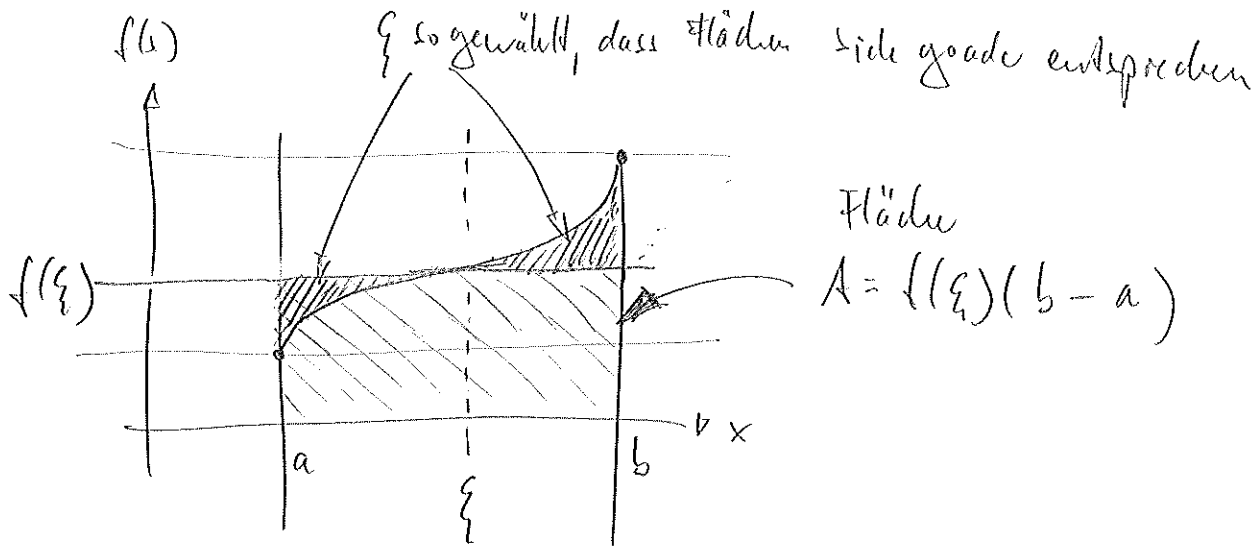 f(x)
ξ so gewählt, dass Flächen sich gerade entsprechen
Fläche
f(ξ)
A = f(ξ)(b - a)
x
a
b
ξ